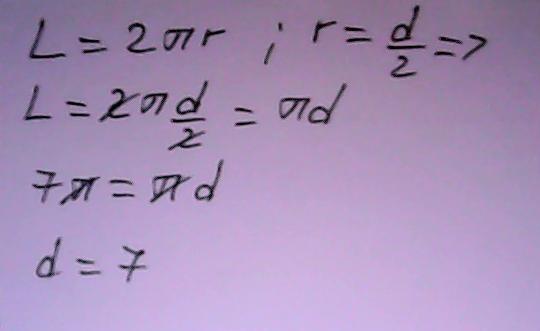 L = 2πr ; r = d/2 =>
L = 2π d/2 = πd
7π = πd
d = 7